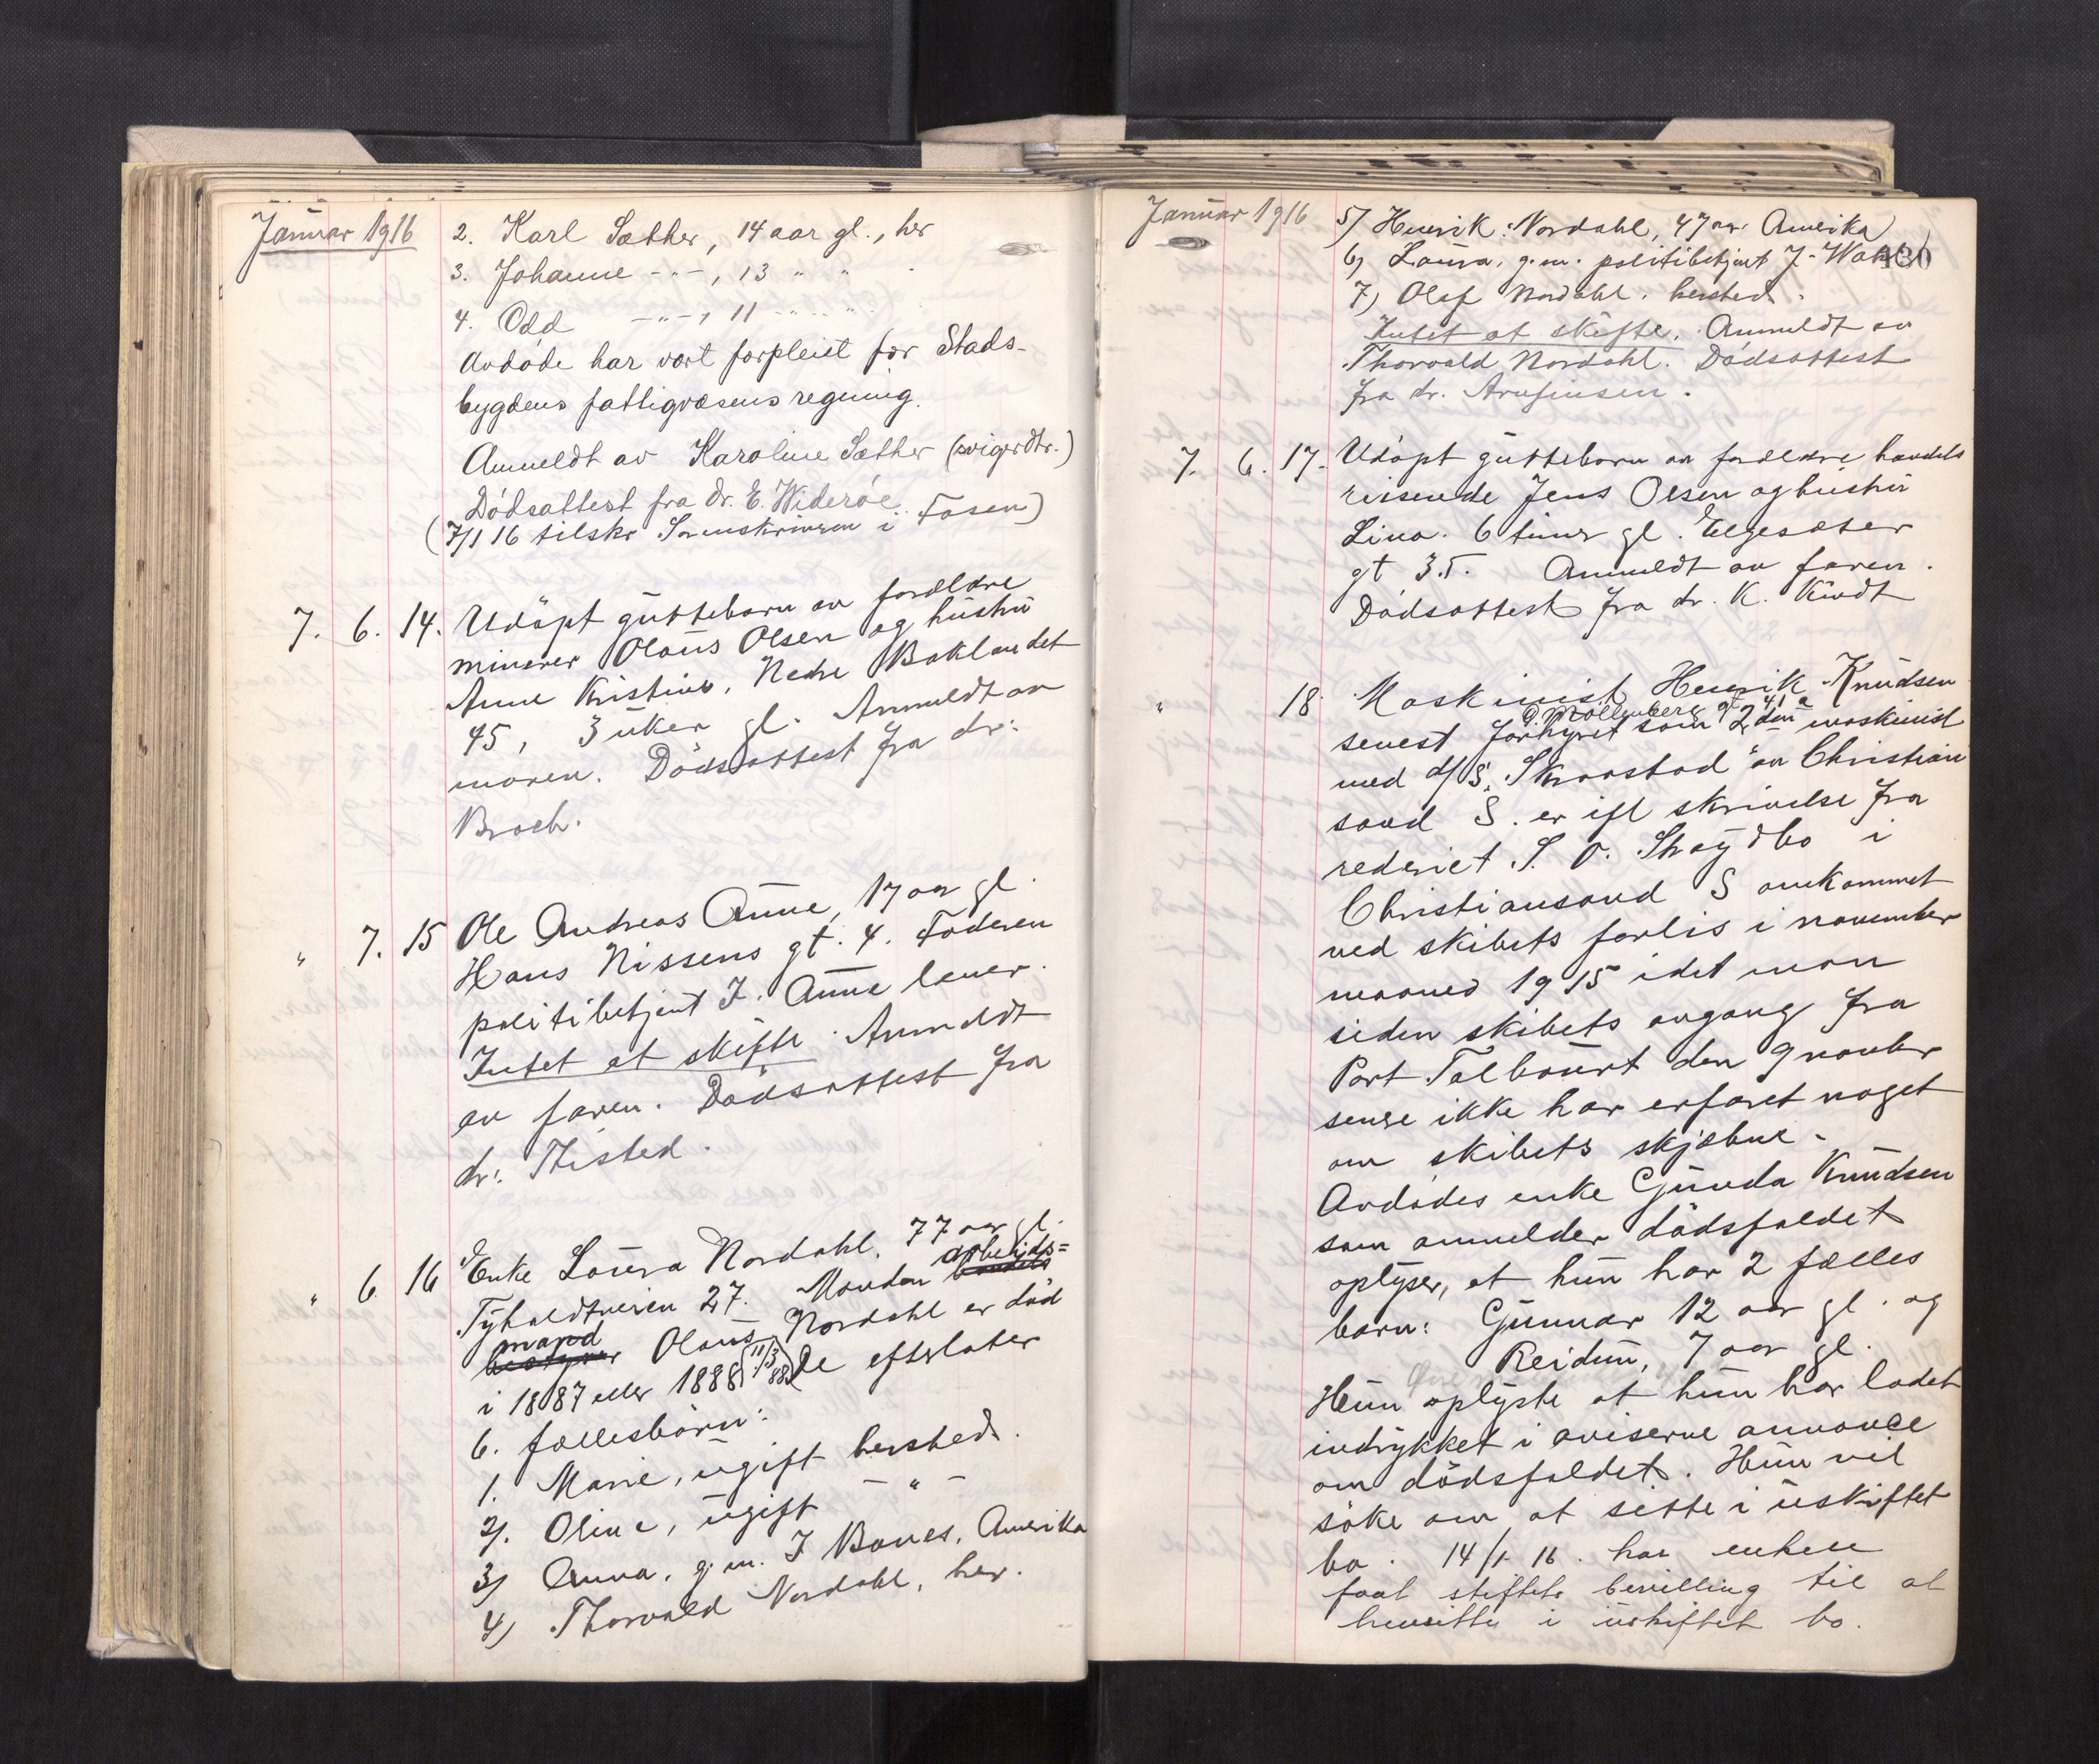 Januar 1916
2. Karl Sæther, 14 aar gl., her
3. Johanne -"-, 13 " "
4. Odd -"-, 11 " "
Avdøde har vært forpleiet for Stads-
bygdens fattigvæsens regning.
Anmeldt av Karoline Sæther (svigerdtr.)
Dødsattest fra dr. E. Widerøe
(7/1 16 tilskr Sorenskriveren i Fosen)
7. 6. 14. Udöpt guttebarn av forældre
minerer Olaus Olsen og hustru
Anne Kristine, Nedre Baklandet
45, 3 uker gl. Anmeldt av
moren. Dödsattest fra dr:
Broch.
" 7. 15 Ole Andreas Aune, 17 aar gl.
Hans Nissens gt. 4. Faderen
politibetjent I. Aune lever.
Intet at skifte. Anmeldt
av faren. Dödsattest fra
dr: Thisted.
" 6. 16 Enke Laura Nordahl, 77 aar gl.
Tyholdtveien 27. Manden arbeids=
mand Olaus Nordahl er död
i 1887 eller 1888 (11/3 88) De efterlater
6. fællesbörn:
1. Marie, ugift hersteds.
2). Oline, ugift -"-
3) Anna, g. m. I Bones, Amerika
4) Thorvald Nordahl, her.
Januar 1916
5) Henrik Nordahl, 47 aar. Amerika
6) Laura, g. m. politibetjent J.
430
7) Olaf Nordahl. hersted.
Intet at skifte. Anmeldt av
Thorvald Nordahl. Dödsattest
fra dr. Arnfinsen.
7. 6. 17. Udöpt guttebarn av forældre handels
reisende Jens Olsen og hustru
Lina. 6 timer gl. Elgesæter
gt 35. Anmeldt av faren.
Dödsattest fra dr. K. Kindt
" 18 Maskinist Henrik Knudsen
D. Möllenberg gt 41 a
senest forhyret som 2den maskinist
med d/S. "Skraastad" av Christian
sand S. er ifl skrivelse fra
rederiet S. O. i
Christiansand S omkommet
ved skibets forlis i november
maaned 1915 idet man
siden skibets avgang fra
Port Talbourt den 9 novbr
senre ikke har erfaret noget
om skibets skjæbne.
Avdödes enke Gunda Knudsen
som anmelder dödsfaldet
oplyser, at hun har 2 fælles
barn: Gunnar 12 aar gl. og
Reidun, 7 aar gl.
Hun oplyste at hun har ladet
indrykket i aviserne annonce
om dödsfaldet. Hun vil
söke om at sitte i uskiftet
bo. 14/1. 16. har enken
faat stiftets bevilling til at
hensitte i uskiftet bo.